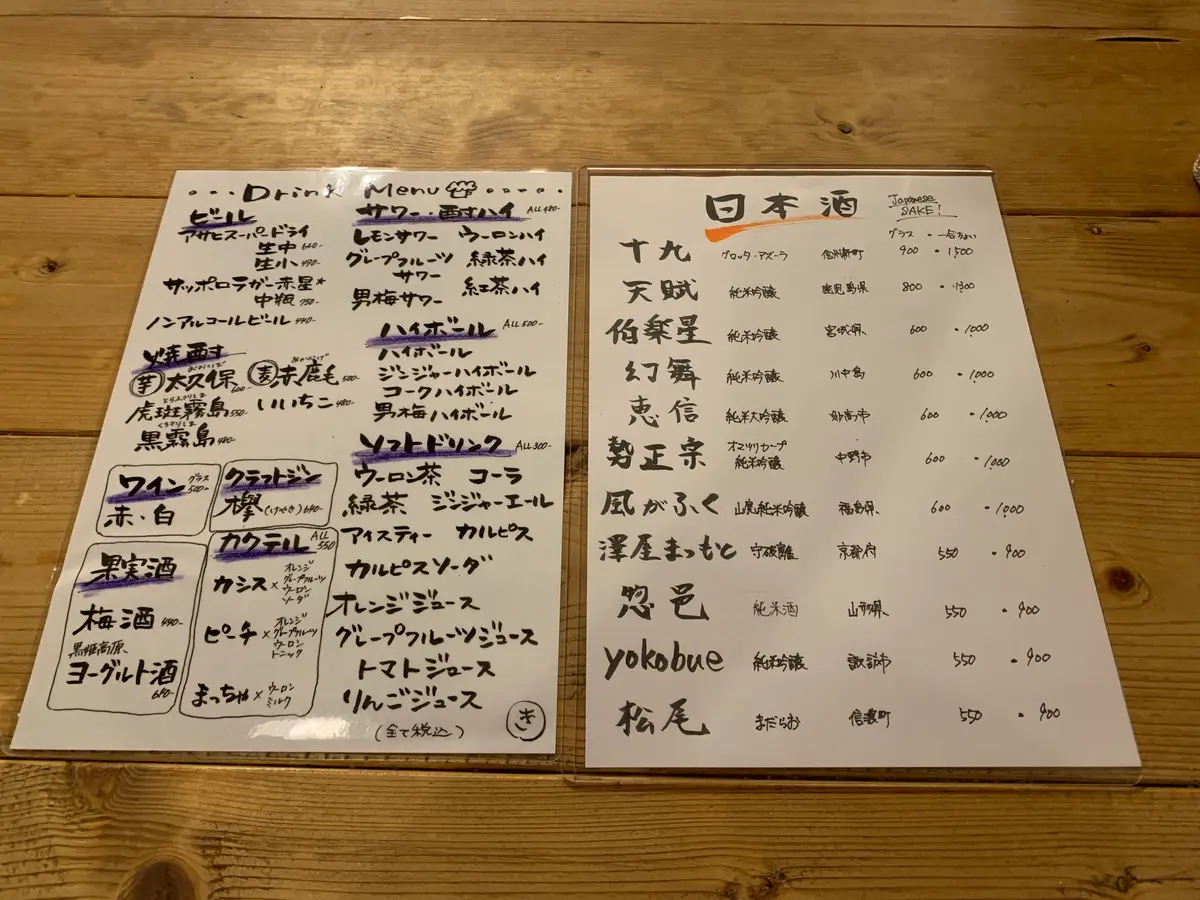 Drink Menu
ビール
アサヒスーパードライ
生中 640-
生小 490-
サッポロラガー赤星★
中瓶 750-
ノンアルコールビール 440-
焼酎
おおくぼ
芋 大久保 600-
あかかげ
麦 赤鹿毛 500-
とらふきりしま
虎斑霧島 550
いいちこ 480-
くろきりしま
黒霧島 480-
ワイン グラス 500-
赤・白
クラフトジン
欅(けやき) 640-
果実酒
梅酒 490-
黒姫高原、
ヨーグルト酒 640-
カクテル ALL 550
カシス × オレンジ
グレープフルーツ
ウーロン
ソーダ
ピーチ × オレンジ
グレープフルーツ
ウーロン
トニック
まっちゃ × ウーロン
ミルク
サワー・酎ハイ ALL 480-
レモンサワー ウーロンハイ
グレープフルーツ 緑茶ハイ
サワー 紅茶ハイ
男梅サワー
ハイボール ALL 500-
ハイボール
ジンジャーハイボール
コークハイボール
男梅ハイボール
ソフトドリンク ALL 300-
ウーロン茶 コーラ
緑茶 ジンジャーエール
アイスティー カルピス
カルピスソーダ
オレンジジュース
グレープフルーツジュース
トマトジュース
りんごジュース
(全て税込)
き
日本酒 Japanese SAKE!
グラス ・ 一合ちょい
十九 グロッタ・アズーラ 信州新町 900 ・1500
天賦 純米吟醸 鹿児島県 800 ・1300
伯楽星 純米吟醸 宮城県、 600 ・1000
幻舞 純米吟醸 川中島 600 ・1000
恵信 純米大吟醸 妙高市 600 ・1000
勢正宗 オマツリカープ 純米吟醸 中野市 600 ・1000
風がふく 山廃純米吟醸 福島県、 600 ・1000
澤屋まつもと 守破離 京都府 550 ・900
惣邑 純米酒 山形県、 550 ・900
yokobue 純米吟醸 諏訪市 550 ・900
松尾 まだらお 信濃町 550 ・900